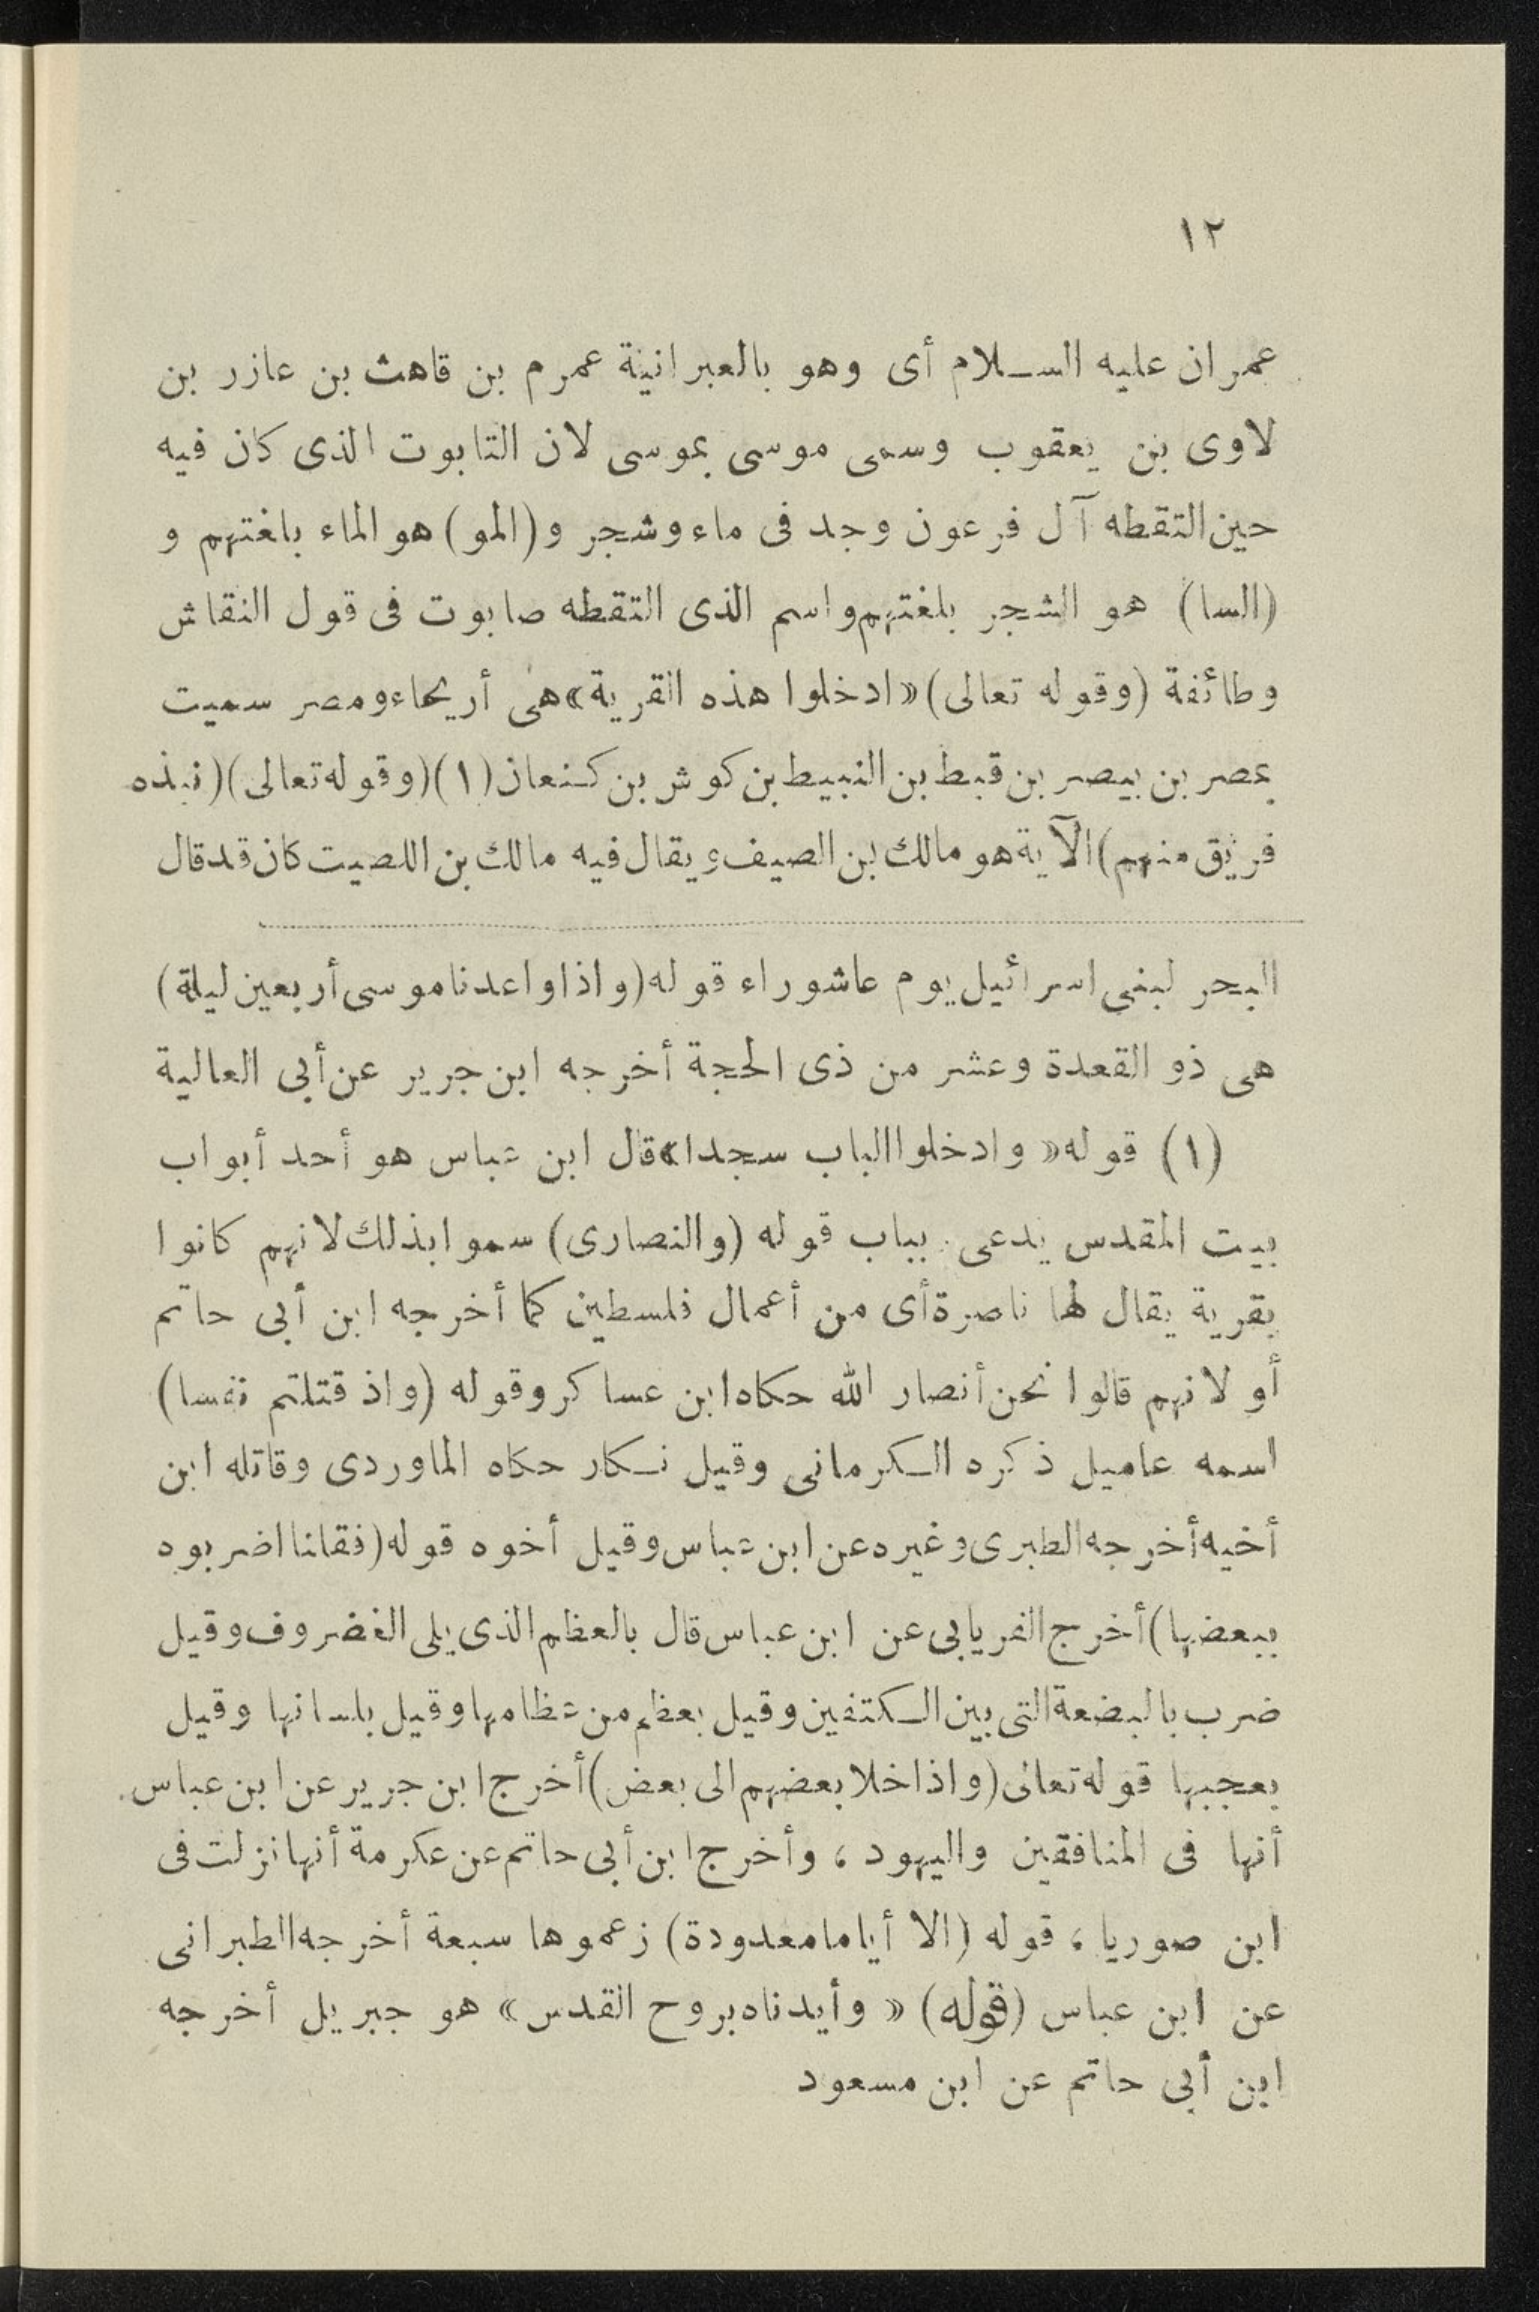 ١٢
عمران عليه السلام أى وهو بالعبرانية عمرم بن قاهث بن عازر بن
لاوى بن يعقوب وسمى موسى بموسى لان التابوت الذى كان فيه
حين التقطه آل فرعون وجد فى ماء وشجر و (المو) هو الماء بلغتهم و
(السا) هو الشجر بلغتهم واسم الذى التقطه صابوت فى قول النقاش
وطائفة (وقوله تعالى) «ادخلوا هذه القرية» هى أريحاء ومصر سميت
بمصر بن بيصر بن قبط بن النبيط بن كوش بن كنعان (١) (وقوله تعالى) (نبذه
فريق منهم) الآية هو مالك بن الصيف ويقال فيه مالك بن اللصيت كان قد قال
البحر لبنى اسرائيل يوم عاشوراء قوله (واذا واعدنا موسى أربعين ليلة)
هى ذو القعدة وعشر من ذى الحجة أخرجه ابن جرير عن أبى العالية
(١) قوله «وادخلوا الباب سجدا» قال ابن عباس هو أحد أبواب
بيت المقدس يدعى بباب قوله (والنصارى) سموا بذلك لانهم كانوا
بقرية يقال لها ناصرة أى من أعمال فلسطين كما أخرجه ابن أبى حاتم
أو لانهم قالوا نحن أنصار الله حكاه ابن عساكر وقوله (واذ قتلتم نفسا)
اسمه عاميل ذكره الكرمانى وقيل نكار حكاه الماوردى وقاتله ابن
أخيه أخرجه الطبرى وغيره عن ابن عباس وقيل أخوه قوله (فقلنا اضربوه
ببعضها) أخرج الفريابى عن ابن عباس قال بالعظم الذى يلى الغضروف وقيل
ضرب بالبضعة التى بين الكتفين وقيل بعظم من عظامها وقيل بلسانها وقيل
بعجبها قوله تعالى (واذا خلا بعضهم الى بعض) أخرج ابن جرير عن ابن عباس
أنها فى المنافقين واليهود ، وأخرج ابن أبى حاتم عن عكرمة أنها نزلت فى
ابن صوريا ، قوله (الا أياما معدودة) زعموها سبعة أخرجه الطبرانى
عن ابن عباس (قوله) « وأيدناه بروح القدس » هو جبريل أخرجه
ابن أبى حاتم عن ابن مسعود